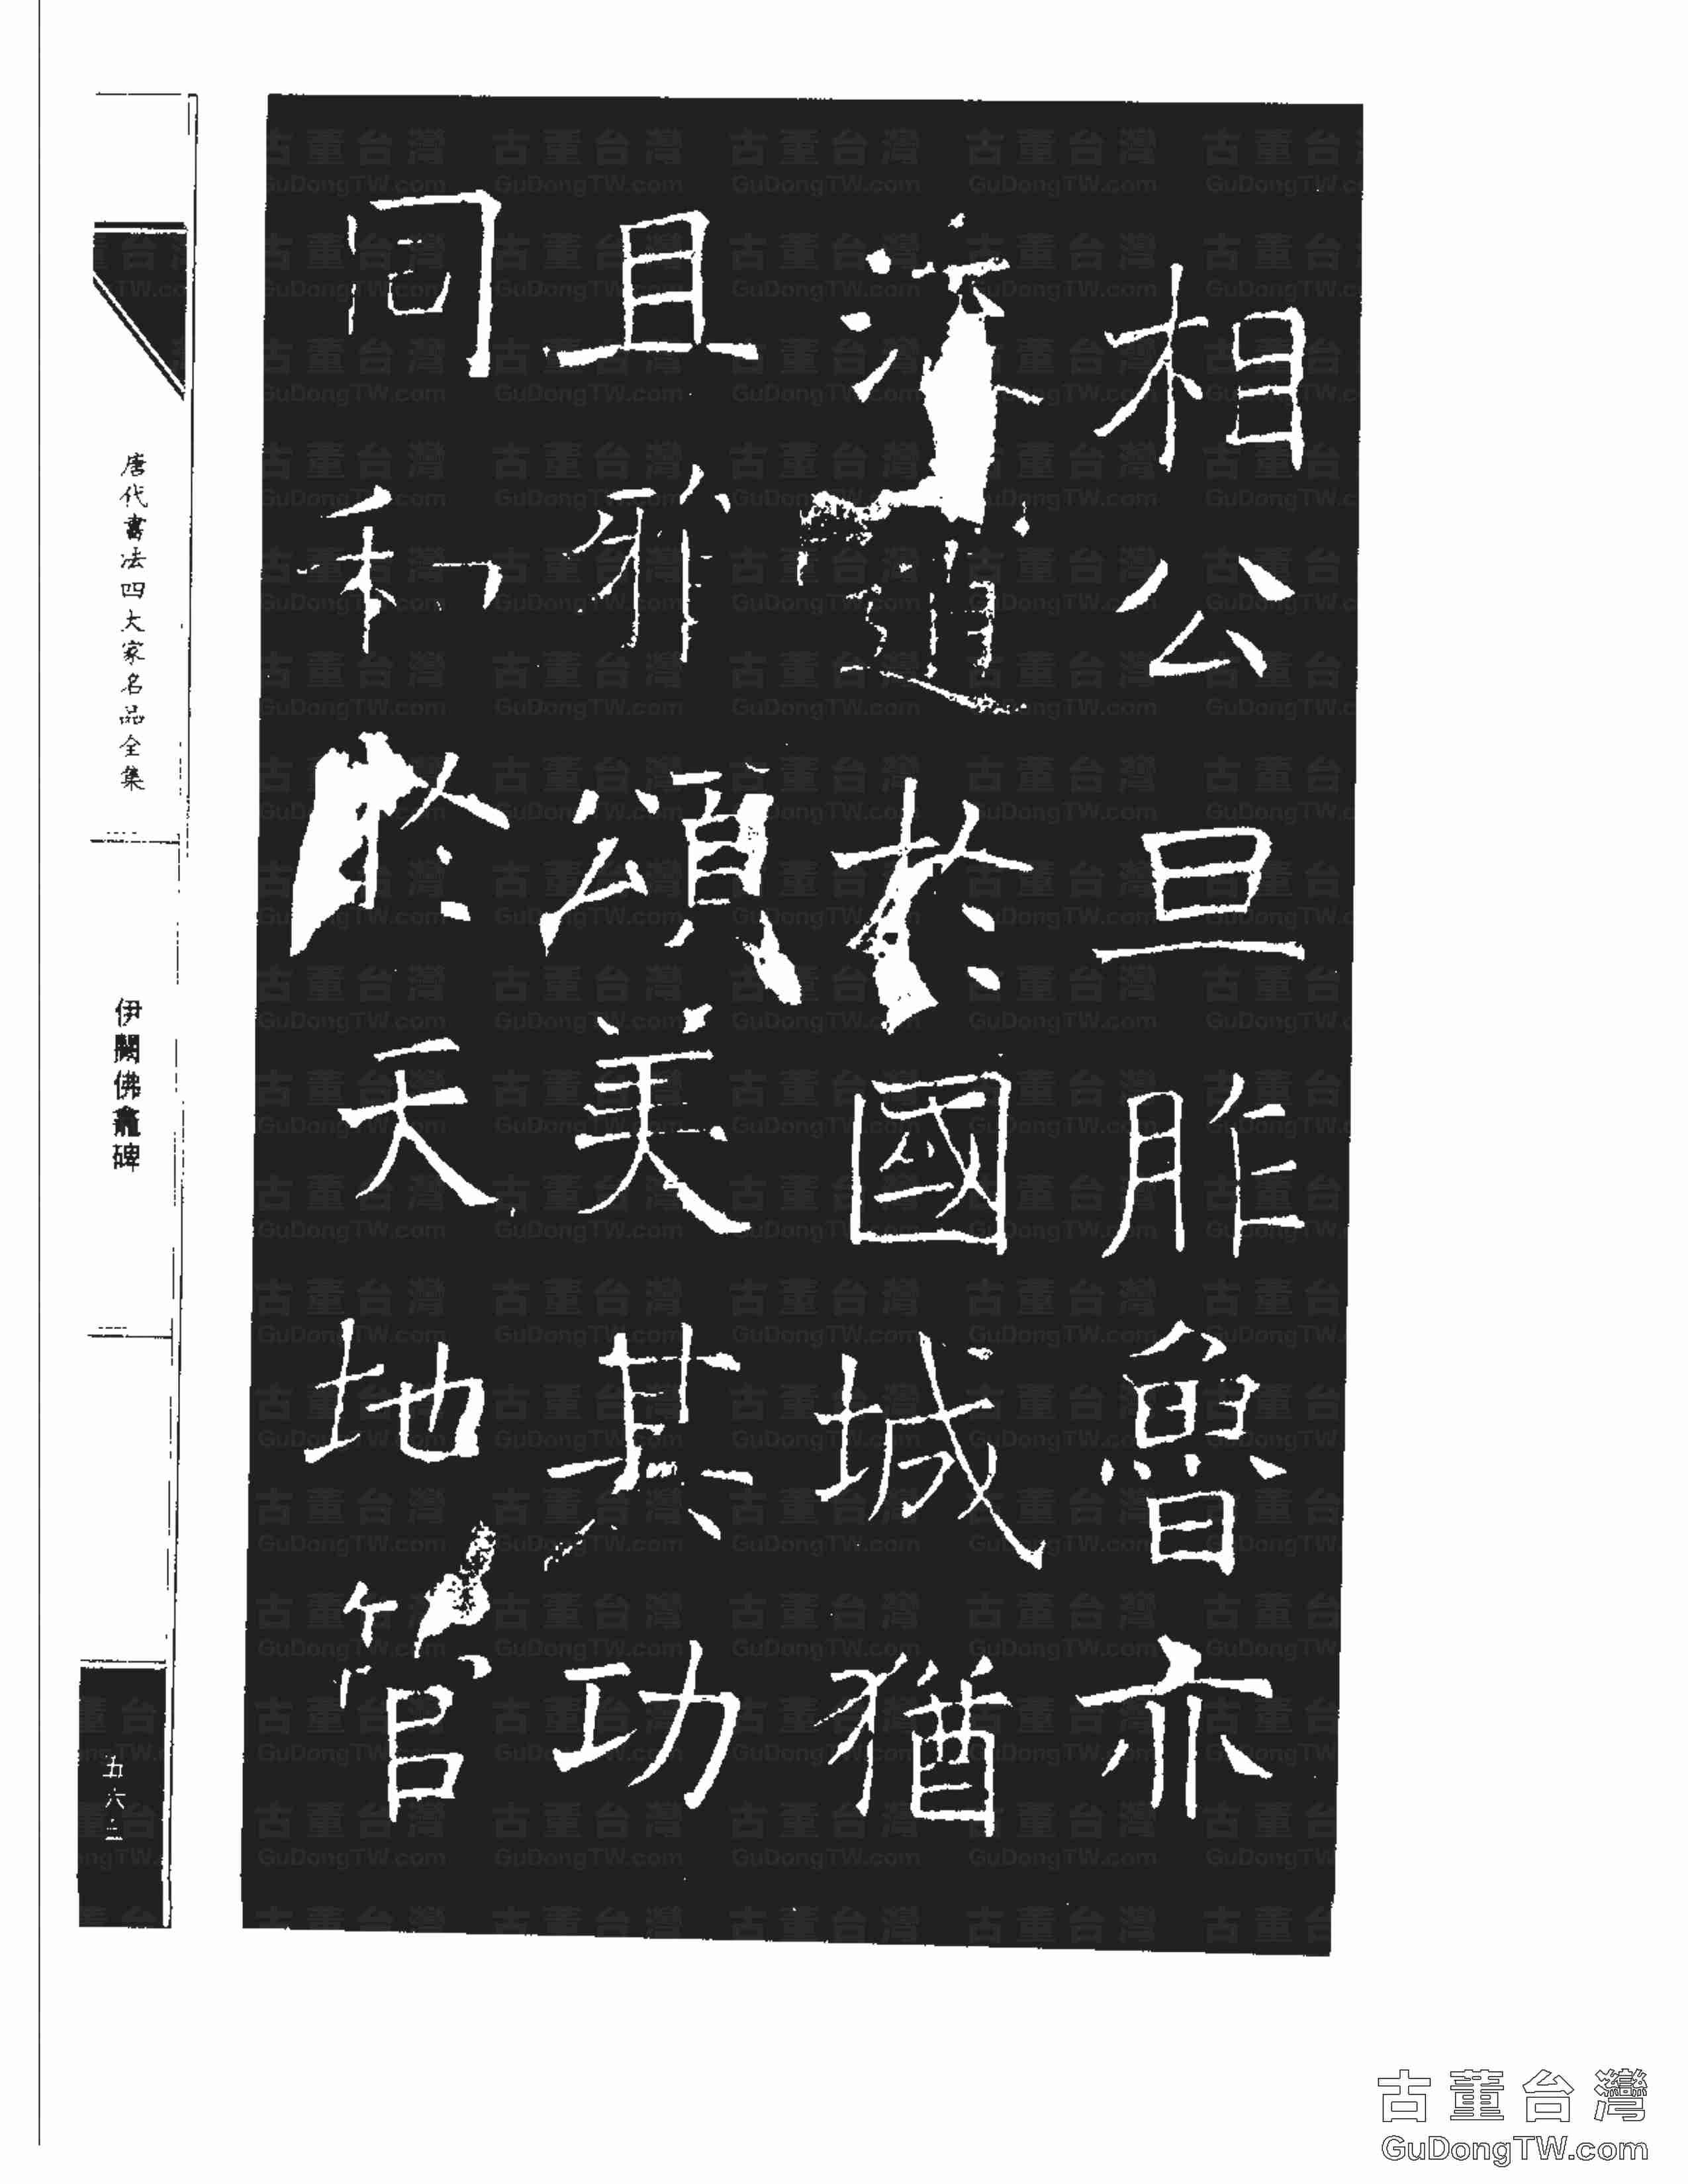 相公旦胙魯亦
流於國城猶
且雅頌美其功
同和於天地管
唐代書法四大家名品全集
伊闕佛龕碑
五六
古董台灣
GuDongTW.com